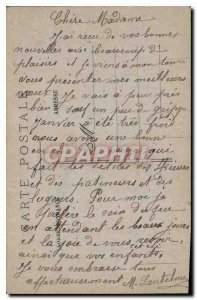 Chère Madame
J'ai reçu de vos bonnes
nouvelles avec beaucoup de
plaisir et je viens à mon tour
vous présenter mes meilleurs
vœux. Je vais à peu près
bien sauf un peu de grippe
Janvier a été très froid
nous avons une bonne
qui
fait les délices des
et des patineurs et des
lugeurs. Pour moi je
préfère le coin du feu
en attendant les beaux jours
et la joie de vous
ainsi que vos enfants.
Je vous embrasse tous
affectueusement M.
CARTE POSTALE
CARPHILA